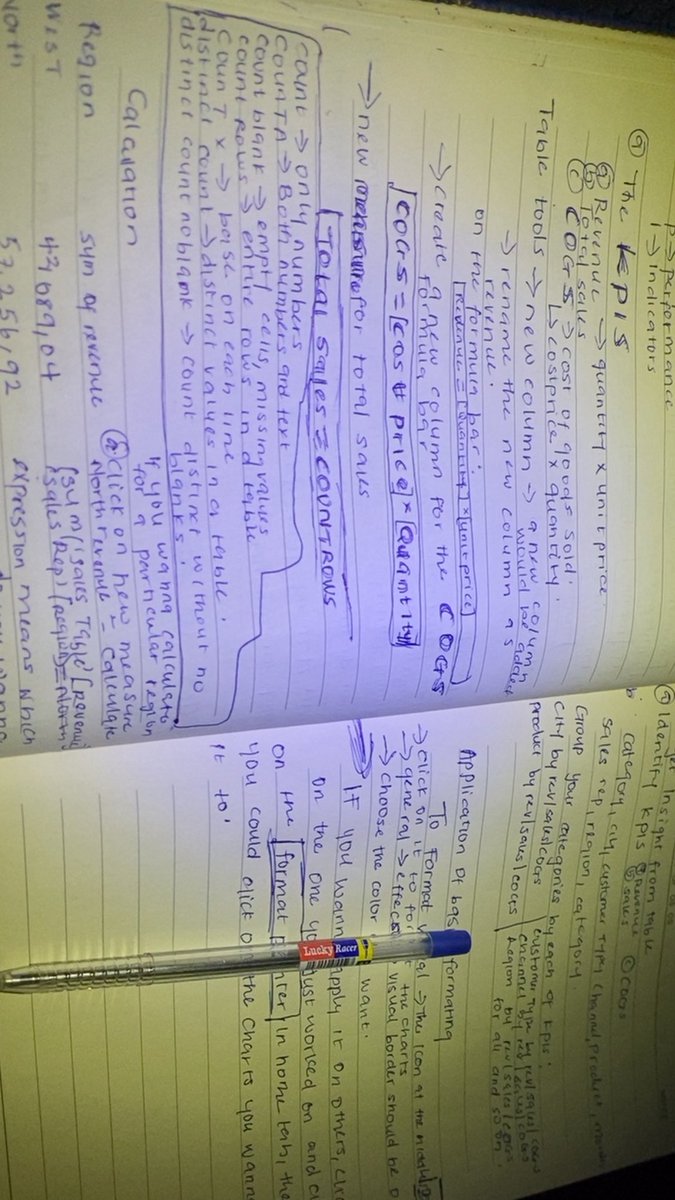 p → performance
I → indicators
① The KPIS
ⓐ Revenue → quantity x unit price
ⓑ Total sales
ⓒ COGS → cost of goods sold.
↳ cost price x quantity.
Table tools → new column → a new column would be added
→ rename the new column as revenue.
on the formula bar:
Revenue = [Quantity] x [unit price]
→ create a new column for the COGS
formula bar
COGS = [cost price] x [Quantity]
→ new measure for total sales
Total sales = COUNTROWS
count → only numbers
countA → Both numbers and text
count blank → empty cells, missing values
count rows → entire rows in a table
Count x → base on each line
distinct count → distinct values in a table.
distinct count no blank → count distinct without no blanks.
Calculation
Region sum of revenue
WEST
North 57,256,92
If you wanna calculate for a particular region
② click on new measure
North revenue = calculate
(sum('sales Table'[revenue
sales Rep) [region] = North
expression means which
get Insight from table
① Identify KPIs ⓐ Revenue ⓑ sales ⓒ COGS
b. category, city, customer type, channel, product,
sales rep, region, category
Group your categories by each of KPIs:
city by rev/sales/cogs
product by rev/sales/cogs
customer type by rev/sales/cogs
channel by rev/sales/cogs
Region by rev/sales/cogs
for all and so on.
Application of formating
To Format → The icon at the
→ click on it to the charts
→ general → effects visual border should be
→ choose the color want.
If you wann apply it on others,
on the one just worked on and
on the format in home tab, the
you could click on the charts you wann
it to.
Lucky Racer